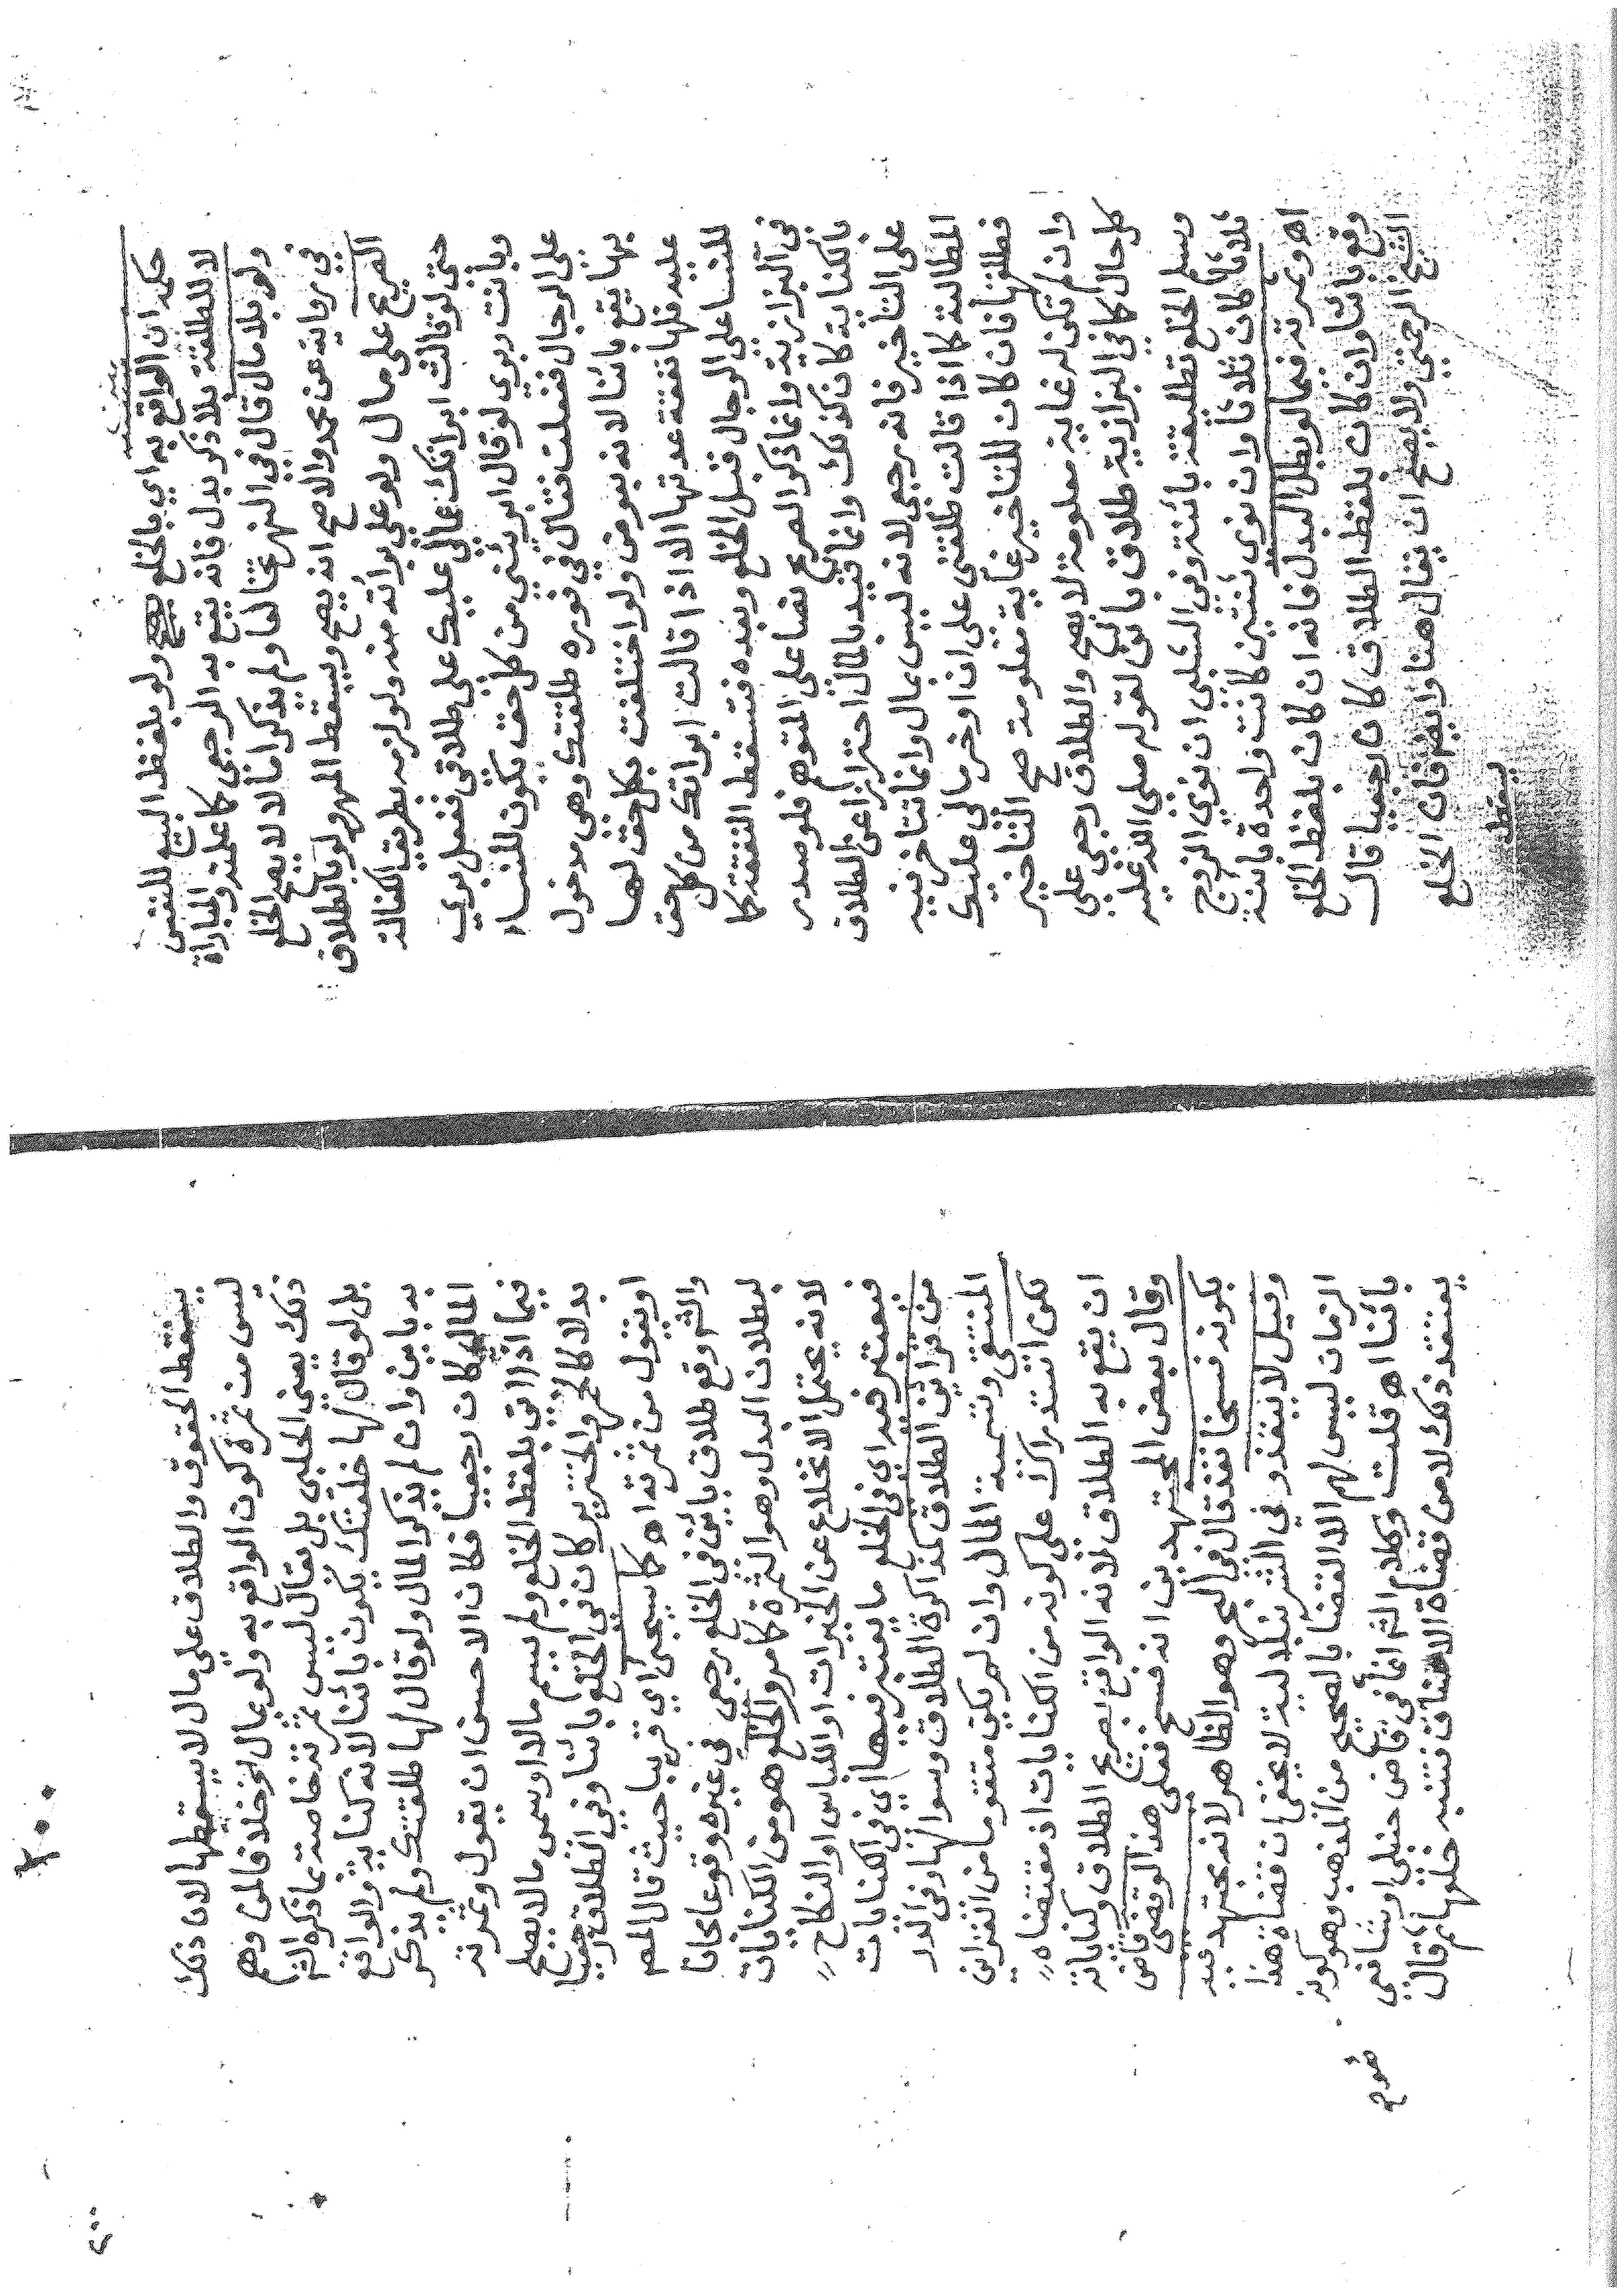 حكمه ان الواقع به اي بالخلع ولو بلفظ البيع للنفس
لا للطلقة بلا ذكر بدل فانه يقع به الرجعي كما علمته والمباراة
ولو بلا مال قال في النهر مخالعا ولم يذكرا مالا لا يصح الخلع
في رواية عن محمد والاصح انه يصح ويسقط المهر لو بالطلاق
الصريح على مال ولو على برأته منه ولو لزمه بطريق الكفالة
حتى لو قالت ابراتك عمالي عليك على طلاقي ففعل بري
وبانت وبري لو قال ابرئتني من كل حق يكون للنساء
على الرجال ففعلت فقال في فوره طلقتك وهي مدخول
بها يقع بائنا لانه بعوض ولو اختلعت بكل حق لها
عليه فلها نفقة عدتها الا اذا قالت ابراتك من كل حق
للنسا على الرجال قبل الخلع وبعده فتسقط النفقة كما
في البزازية وانما ذكر الصريح نصا على المتوهم فلو صدر
بالكناية كان كذلك وانما قيد بالمال احترازا عن الطلاق
على التأخير فانه رجعي لانه ليس بمال وانما تتاخر فيه
المطالبة كما اذا قالت طلقني على ان اوخر مالي عليك
فطلقها فان كان للتاخير غاية معلومة صح التأخير
وان لم تكن له غاية معلومة لا يصح والطلاق رجعي على
كل حال كما في البزازية طلاق بائن لقوله صلى الله عليه
وسلم الخلع تطليقة بائنة وفي الشلبي ان نوى الزوج
ثلاثا كان ثلاثا وان نوى ثنتين كانت واحدة بائنة
اهـ وثمرته فيما لو بطل البدل فانه ان كان بلفظ الخلع
وقع بائنا وان كان بلفظ الطلاق كان رجعيا قال
الشيخ الرحمتي ولا يصح ان يقال هنا وايضا فان الخلع
يسقط
يسقط الحقوق والطلاق على مال لا يسقطها لان ذلك
ليس من ثمرة كون الواقع به ولو بمال اخر خلافا لمن وهم
ذلك يعني الحلبي بل يقال ليس ثمرته خاصة بما ذكره الش
بل لو قال لها خلعتك يكون بائنا لانه كناية والواقع
به باين وان لم يذكر المال ولو قال لها طلقتك ولم يذكر
المال كان رجعيا فكان الاحسن ان يقول وثمرته
فيما اذا اتى بلفظ الخلع ولم يسم مالا او سمى مالا يصح
بدلا كالخمر والخنزير كان في الخلع بائنا وفي الطلاق رجعيا
او يقول من ثمرته اهـ كما سيجئ اي قريبا حيث قال المص
والش وقع طلاق بائن في الخلع رجعي في غيره وقوعا مجانا
لبطلان البدل وهو الثمرة كما مر والخلع هو من الكنايات
لانه يحتمل الانخلاع عن الخيرات او اللباس او النكاح
فيعتبر فيه اي في الخلع ما يعتبر فيها اي في الكنايات
من قراين الطلاق كمذاكرة الطلاق وسوالها وفي الدر
المنتقى وتسمية المال وان لم يكن متقوما من القراين
لكن استدراك على كونه من الكنايات اذ مقتضاه
ان يقع به الطلاق لانه الواقع بصريح الطلاق وكناياته
وقال بعض المجتهدين انه فسخ فعلى هذا لو قضى قاض
بكونه فسخا نفذ قال في البحر وهو الظاهر لانه مجتهد فيه
وقيل لا ينفذ وفي الشرنبلالية لا يخفى ان قضاة هذا
الزمان ليس لهم الا القضا بالصحيح من المذهب وهو كونه
بائنا اهـ قلت وكلام الش انما في قاض حنبلي او شافعي
يعتقد ذلك لا من قضاة الاحناف فتنبه خلعها ثم قال